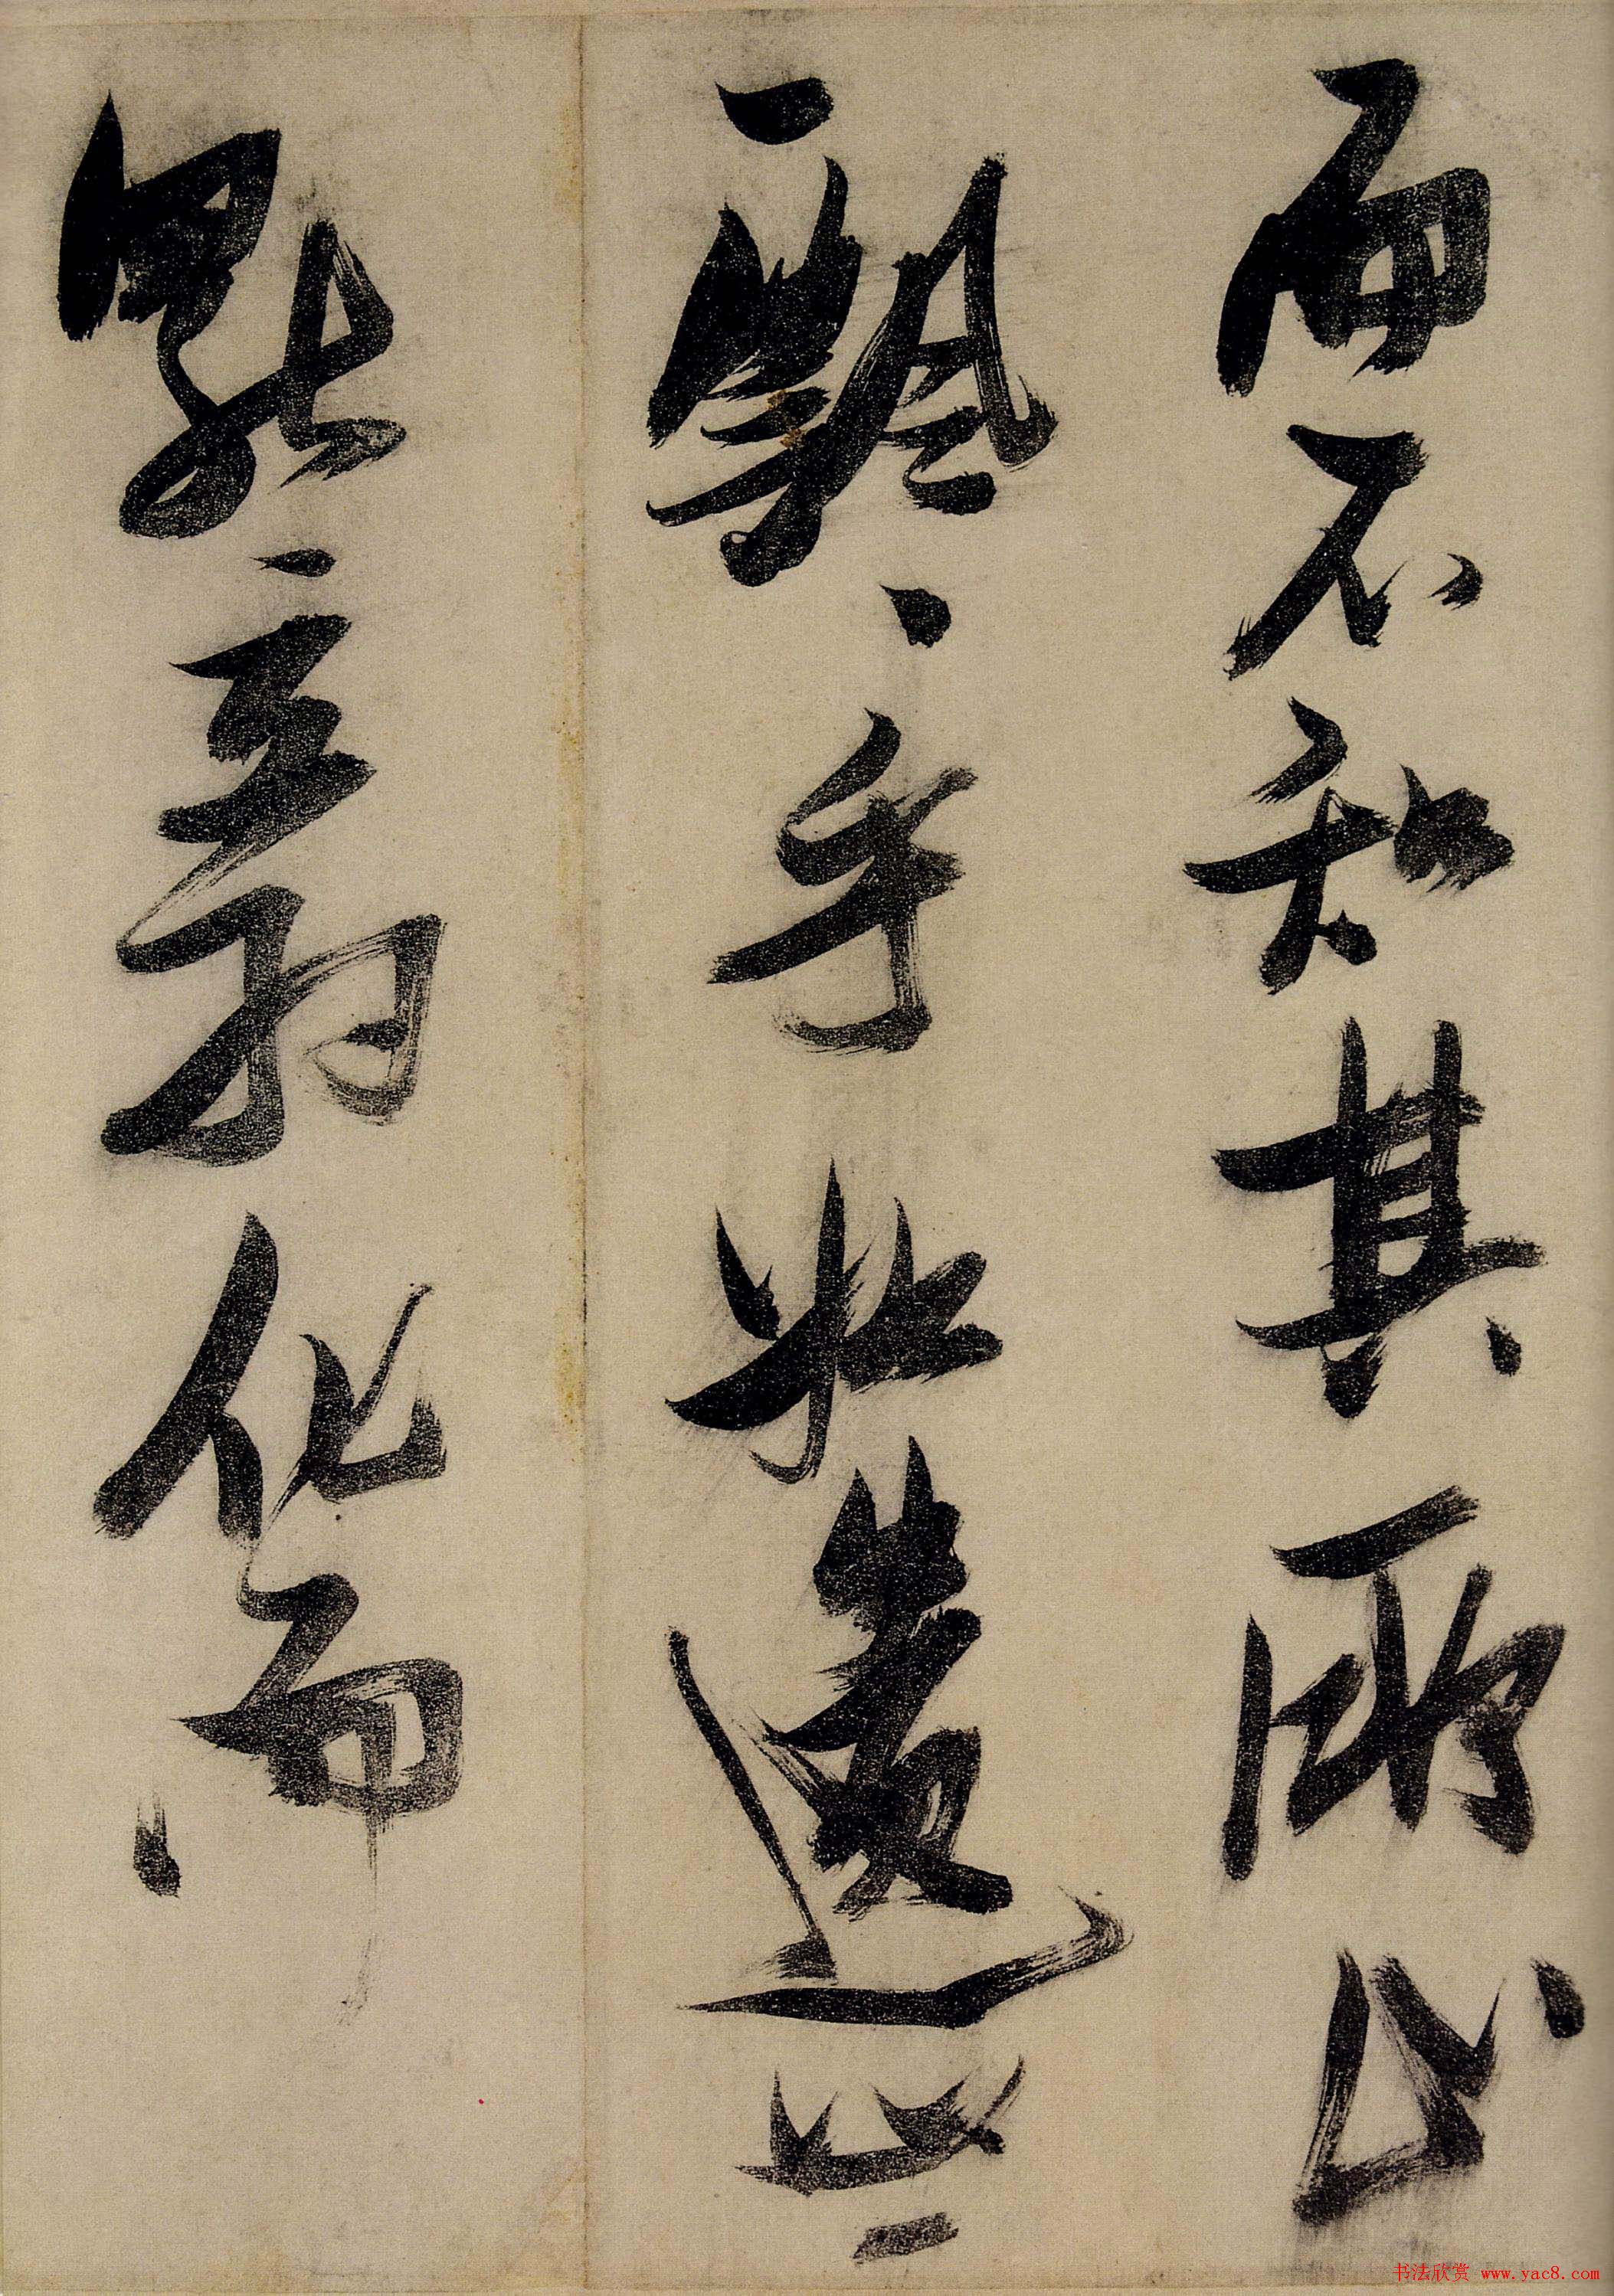 而不知其所止
飄飄乎如遺世
獨立羽化而
书法欣赏 www.yac8.com